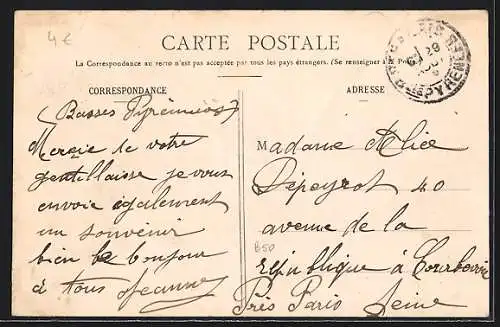 4€
CARTE POSTALE
La Correspondance au recto n'est pas acceptée par tous les pays étrangers. (Se renseigner à la Poste)
CORRESPONDANCE
ADRESSE
(Basses Pyrénnées)
Mercie de votre
gentillaisse je vous
envoie également
un souvenir
bien le bonjour
à tous Jeanne
Madame Alice
Dépeyrot 40
avenue de la
850
république à Courbevoie
Près Paris Seine
29
PYRENEES